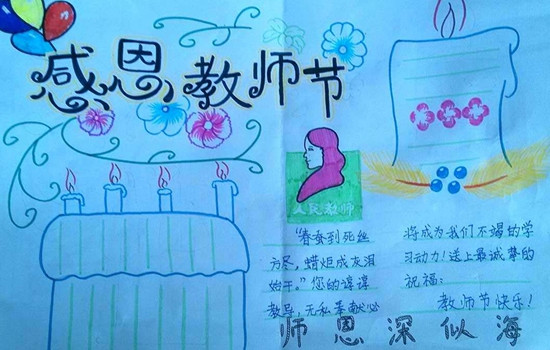 感恩教师节
人民教师
"春蚕到死丝
方尽,蜡炬成灰泪
始干。"您的谆谆
教导,无私奉献必
将成为我们不竭的学
习动力!送上最诚挚的
祝福:
教师节快乐!
师恩深似海